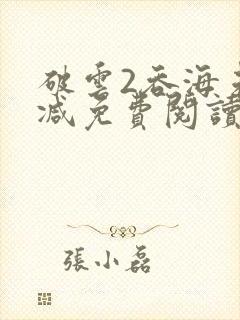 破雲2吞海
減免費閱讀
張小磊